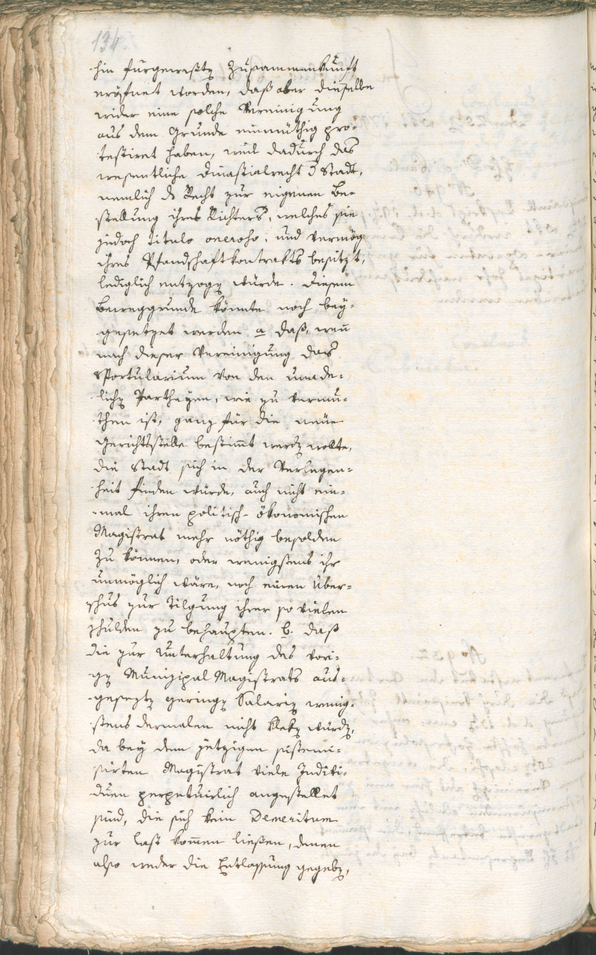 134
hin fürgewesten Zusammenkunft
eröfnet worden, daß aber dieselbe
wider eine solche Vereinigung
aus dem Grunde einmüthig pro-
testiret haben, weil dadurch das
wesentliche Dinastialrecht d Stadt,
nemlich ds Recht zur eigenen Be-
stellung ihres Richters, welches sie
jedoch titulo oneroso, und vermög
ihres Pfandschaftkontrakts besitzt,
lediglich entzogen würde. Diesem
Beweggrunde könnte noch bey-
gesetzet werden a daß, wenn
nach dieser Vereinigung das
Sportularium von den unade-
lichen Partheyen, wie zu vermu-
then ist, ganz für die neue
Gerichtsstelle bestimt werden wollte,
die Stadt sich in der Verlegen-
heit finden würde, auch nicht ein-
mal ihren politisch-ökonomischen
Magistrat mehr nöthig besolden
zu können, oder wenigstens ihr
unmöglich wäre, noch einen Über-
schus zur Tilgung ihrer so vielen
schulden zu behaupten. b. daß
die zur Unterhaltung des vori-
gen Munizipal Magistrats aus-
gesezten geringen Salarien wenig-
stens dermalen nicht kleken würden,
da bey dem jetzigen sistemi-
sirten Magistrat viele Indivi-
duen perpetuirlich angestellet
sind, die sich kein Demeritum
zur last kommen ließen, denen
also weder die Entlassung gegeben,